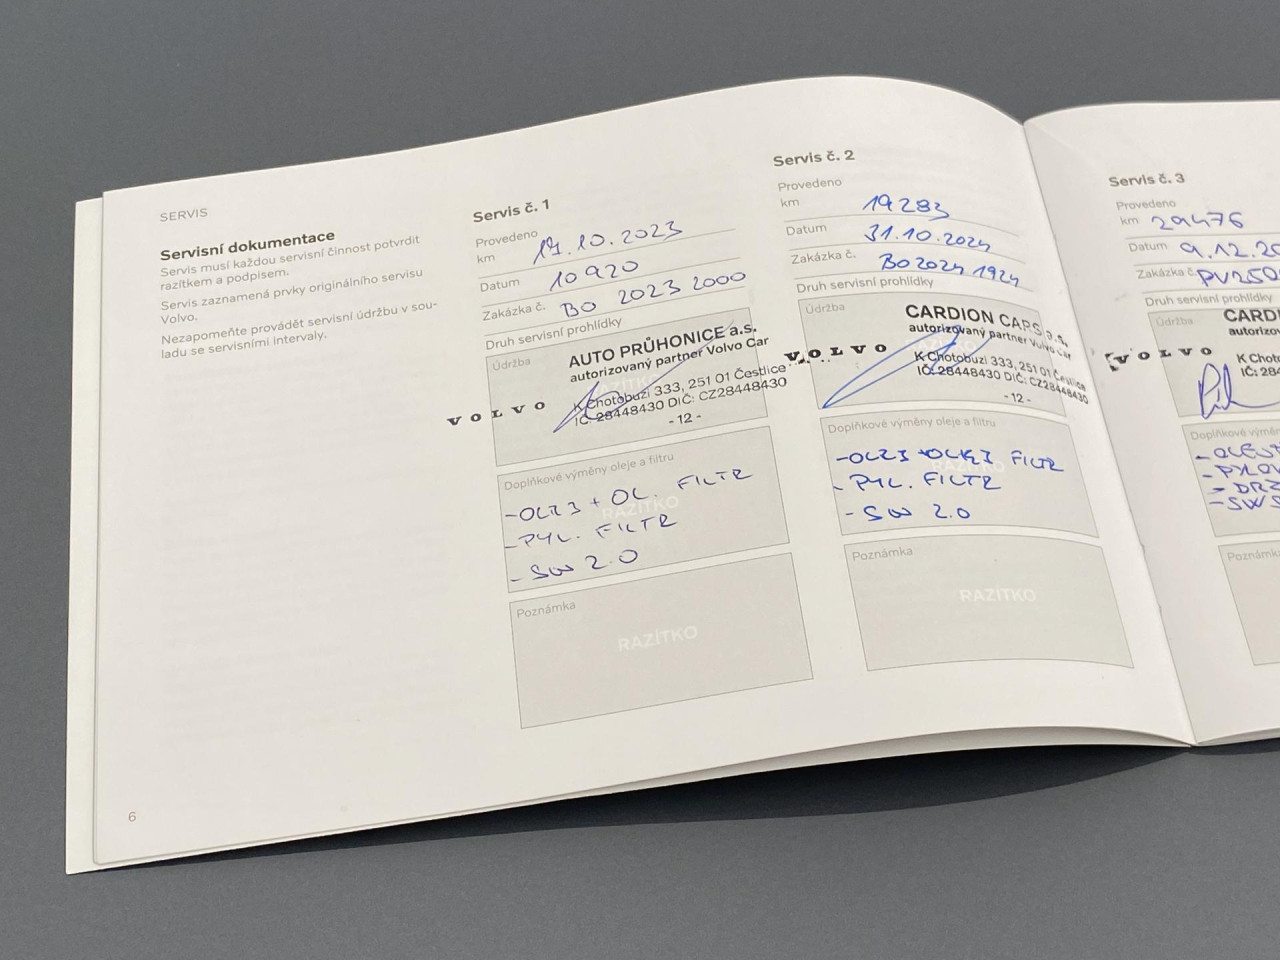 SERVIS
Servisní dokumentace
Servis musí každou servisní činnost potvrdit
razítkem a podpisem.
Servis zaznamená prvky originálního servisu
Volvo.
Nezapomeňte provádět servisní údržbu v sou-
ladu se servisními intervaly.
6
Servis č. 1
Provedeno
km 17.10.2023
Datum 10920
Zakázka č. BO 2023 2000
Druh servisní prohlídky
Údržba
AUTO PRŮHONICE a.s.
autorizovaný partner Volvo Car
RAZÍTKO
VOLVO
K Chotobuzi 333, 251 01 Čestlice
IČ: 28448430 DIČ: CZ28448430
- 12 -
Doplňkové výměny oleje a filtru
RAZÍTKO
- OLEJ + OL. FILTR
- PYL. FILTR
- SW 2.0
Poznámka
RAZÍTKO
Servis č. 2
Provedeno
km 19283
Datum 31.10.2024
Zakázka č. BO2024 1924
Druh servisní prohlídky
Údržba
CARDION CARS a.s.
autorizovaný partner Volvo Car
VOLVO
K Chotobuzi 333, 251 01 Čestlice
IČ: 28448430 DIČ: CZ28448430
- 12 -
Doplňkové výměny oleje a filtru
RAZÍTKO
- OLEJ + OLEJ FILTR
- PYL. FILTR
- SW 2.0
Poznámka
RAZÍTKO
Servis č. 3
Provedeno
km 29476
Datum 9.12.20
Zakázka č. PV250
Druh servisní prohlídky
Údržba
CARDI
autorizo
VOLVO
K Choto
IČ: 284
Doplňkové výměn
- PYLOV
- DRZ
- SW S
Poznámka